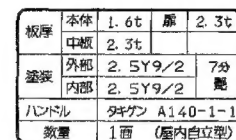 板厚 本体 1.6t 扉 2.3t
中板 2.3t
塗装 外部 2.5Y9/2 7分艶
内部 2.5Y9/2
ハンドル タキゲン A140-1-1
数量 1面 (屋内自立型)